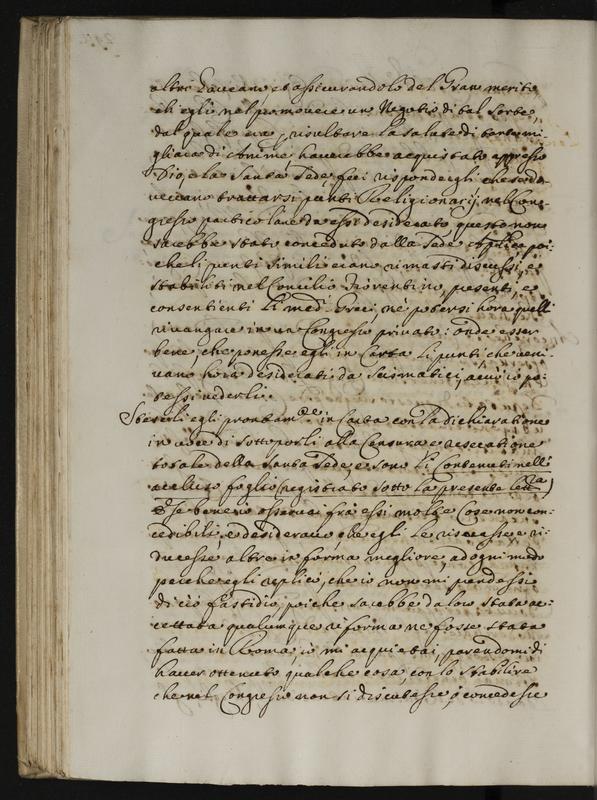 altri haveano et assicurandolo del Gran merito
ch'egli nel promovere un Negotio di tal Sorte,
dal quale era p risultare la salute di tante mi-
gliara di Anime, haverebbe acquistato appresso
Dio, e la Santa Sede, fui rispondergli che se do-
veano trattarsi punti Religionarij nel Con-
gresso particolare da essi desiderato questo non
sarebbe stato conceduto dalla Sede Aplica poi-
che li punti simili erano rimasti discussi, e
stabiliti nel Concilio Fiorentino, presenti, e
consentienti li med. Greci, ne potersi hora quelli
rivangare in un Congresso privato: onde esser
bene che ponesse egli in Carta li punti che veni-
vano hora desiderati da Scismatici, acciò io po-
tessi vederli.
Stese li egli prontam.te in Carta con la dichiaratione
in voce di sottoporli alla Censura e resecatione
totale della Santa Sede, e sono li Contenuti nell'
acchiuso foglio (registrato sotto la presente lettra)
E se bene io osservai frà essi molte Cose non con-
cedibili, e desideravo, che egli le risecasse, e ri-
ducesse altre in forma megliore, ad ogni modo
perche egli replicò, che io non mi prendessi
di ciò fastidio, poiche sarebbe da loro stata ac-
cettata qualunque riforma ne fosse stata
fatta in Roma, io mi acquietai, parendomi di
haver ottenuto qualche cosa, con lo stabilire
che nel Congresso non si discutesse, ò concedesse